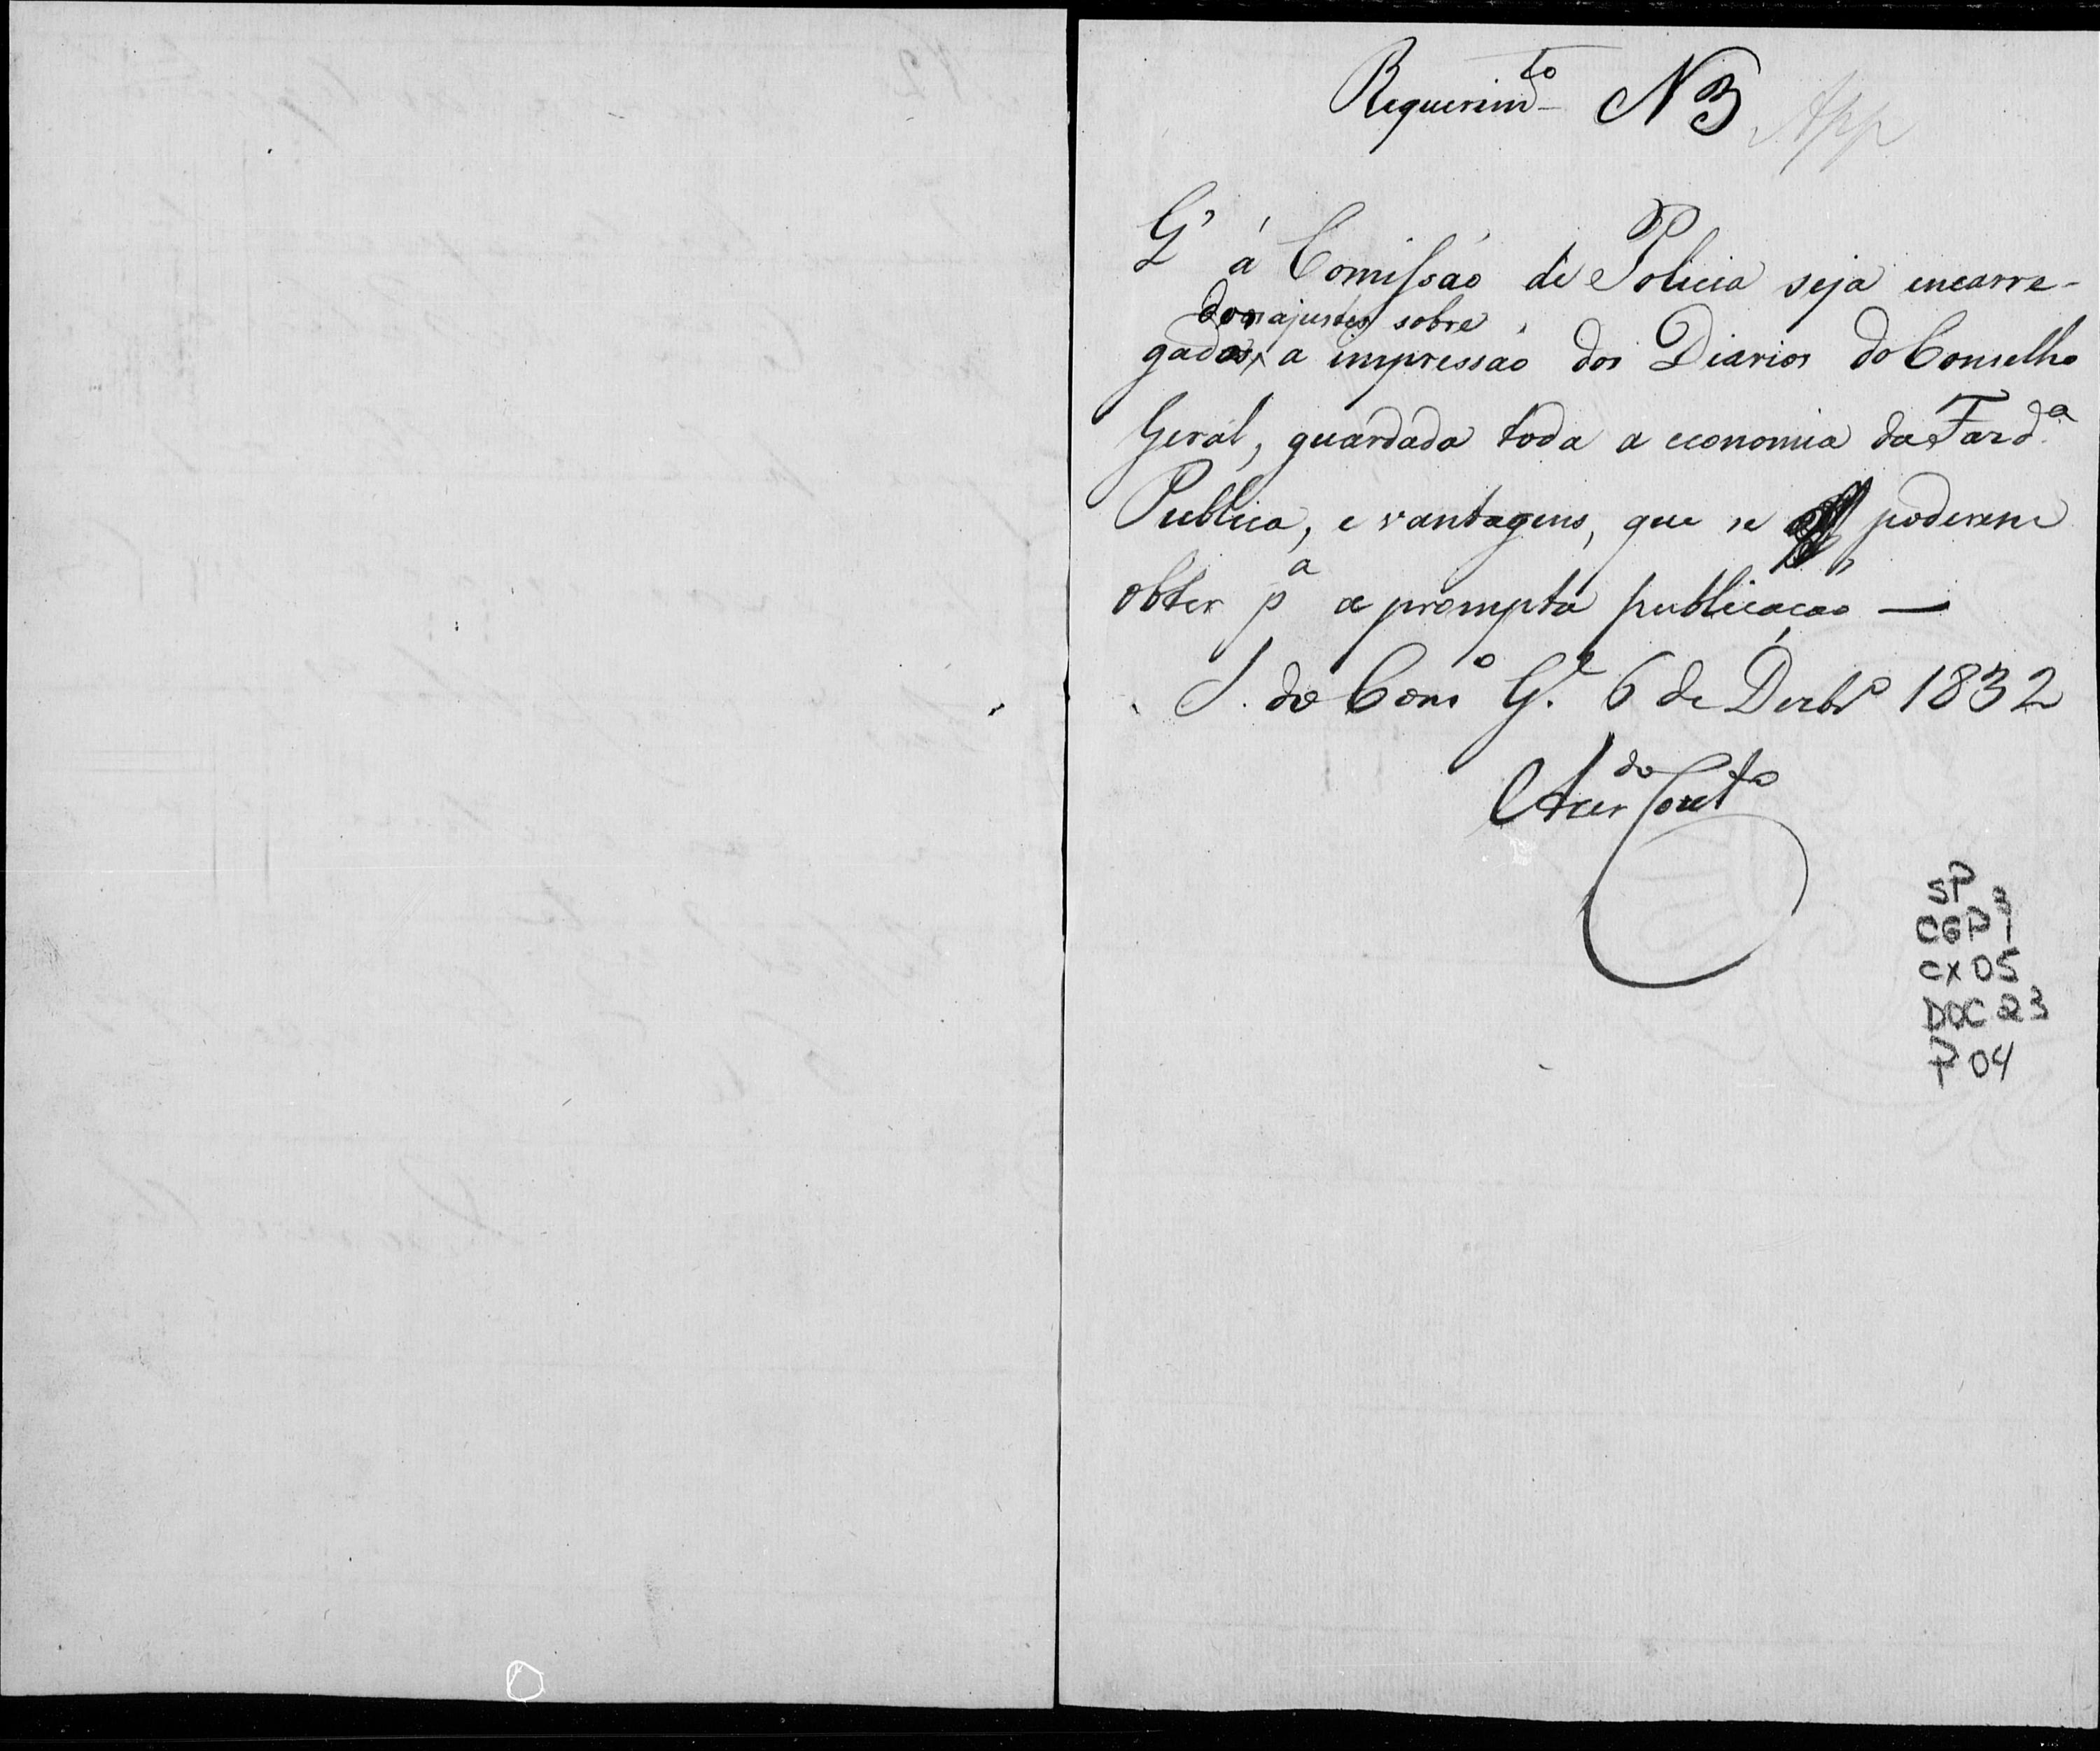 Requerim.to N 3 App
Q' a Comissão de Policia seja encarre-
dos ajustes sobre
gada a impressão dos Diarios do Conselho
Geral, guardada toda a economia da Fazd.a
Publica, e vantagens, que se poderem
obter p.a a prompta publicação —
S. do Cons.o G.l 6 de Dezbr.o 1832
SP
CGP 3 1
CX 05
DOC 23
P 04